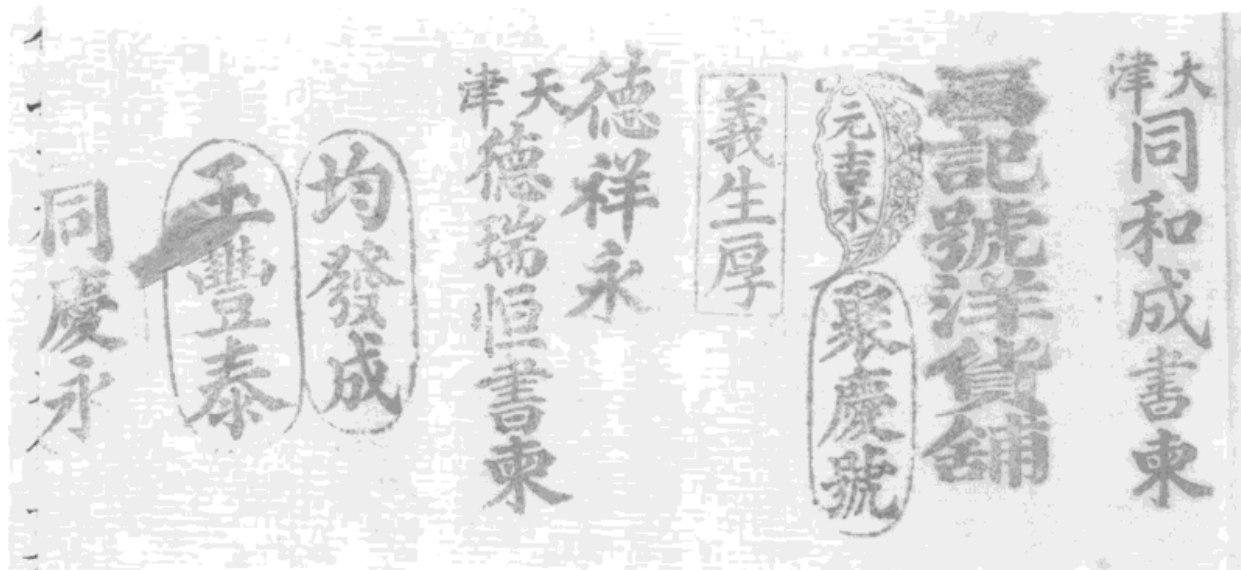 天津同和成書柬
記號洋貨舖
元吉永
聚慶號
義生厚
德祥永
天津德瑞恒書柬
均發成
玉豐泰
同慶永